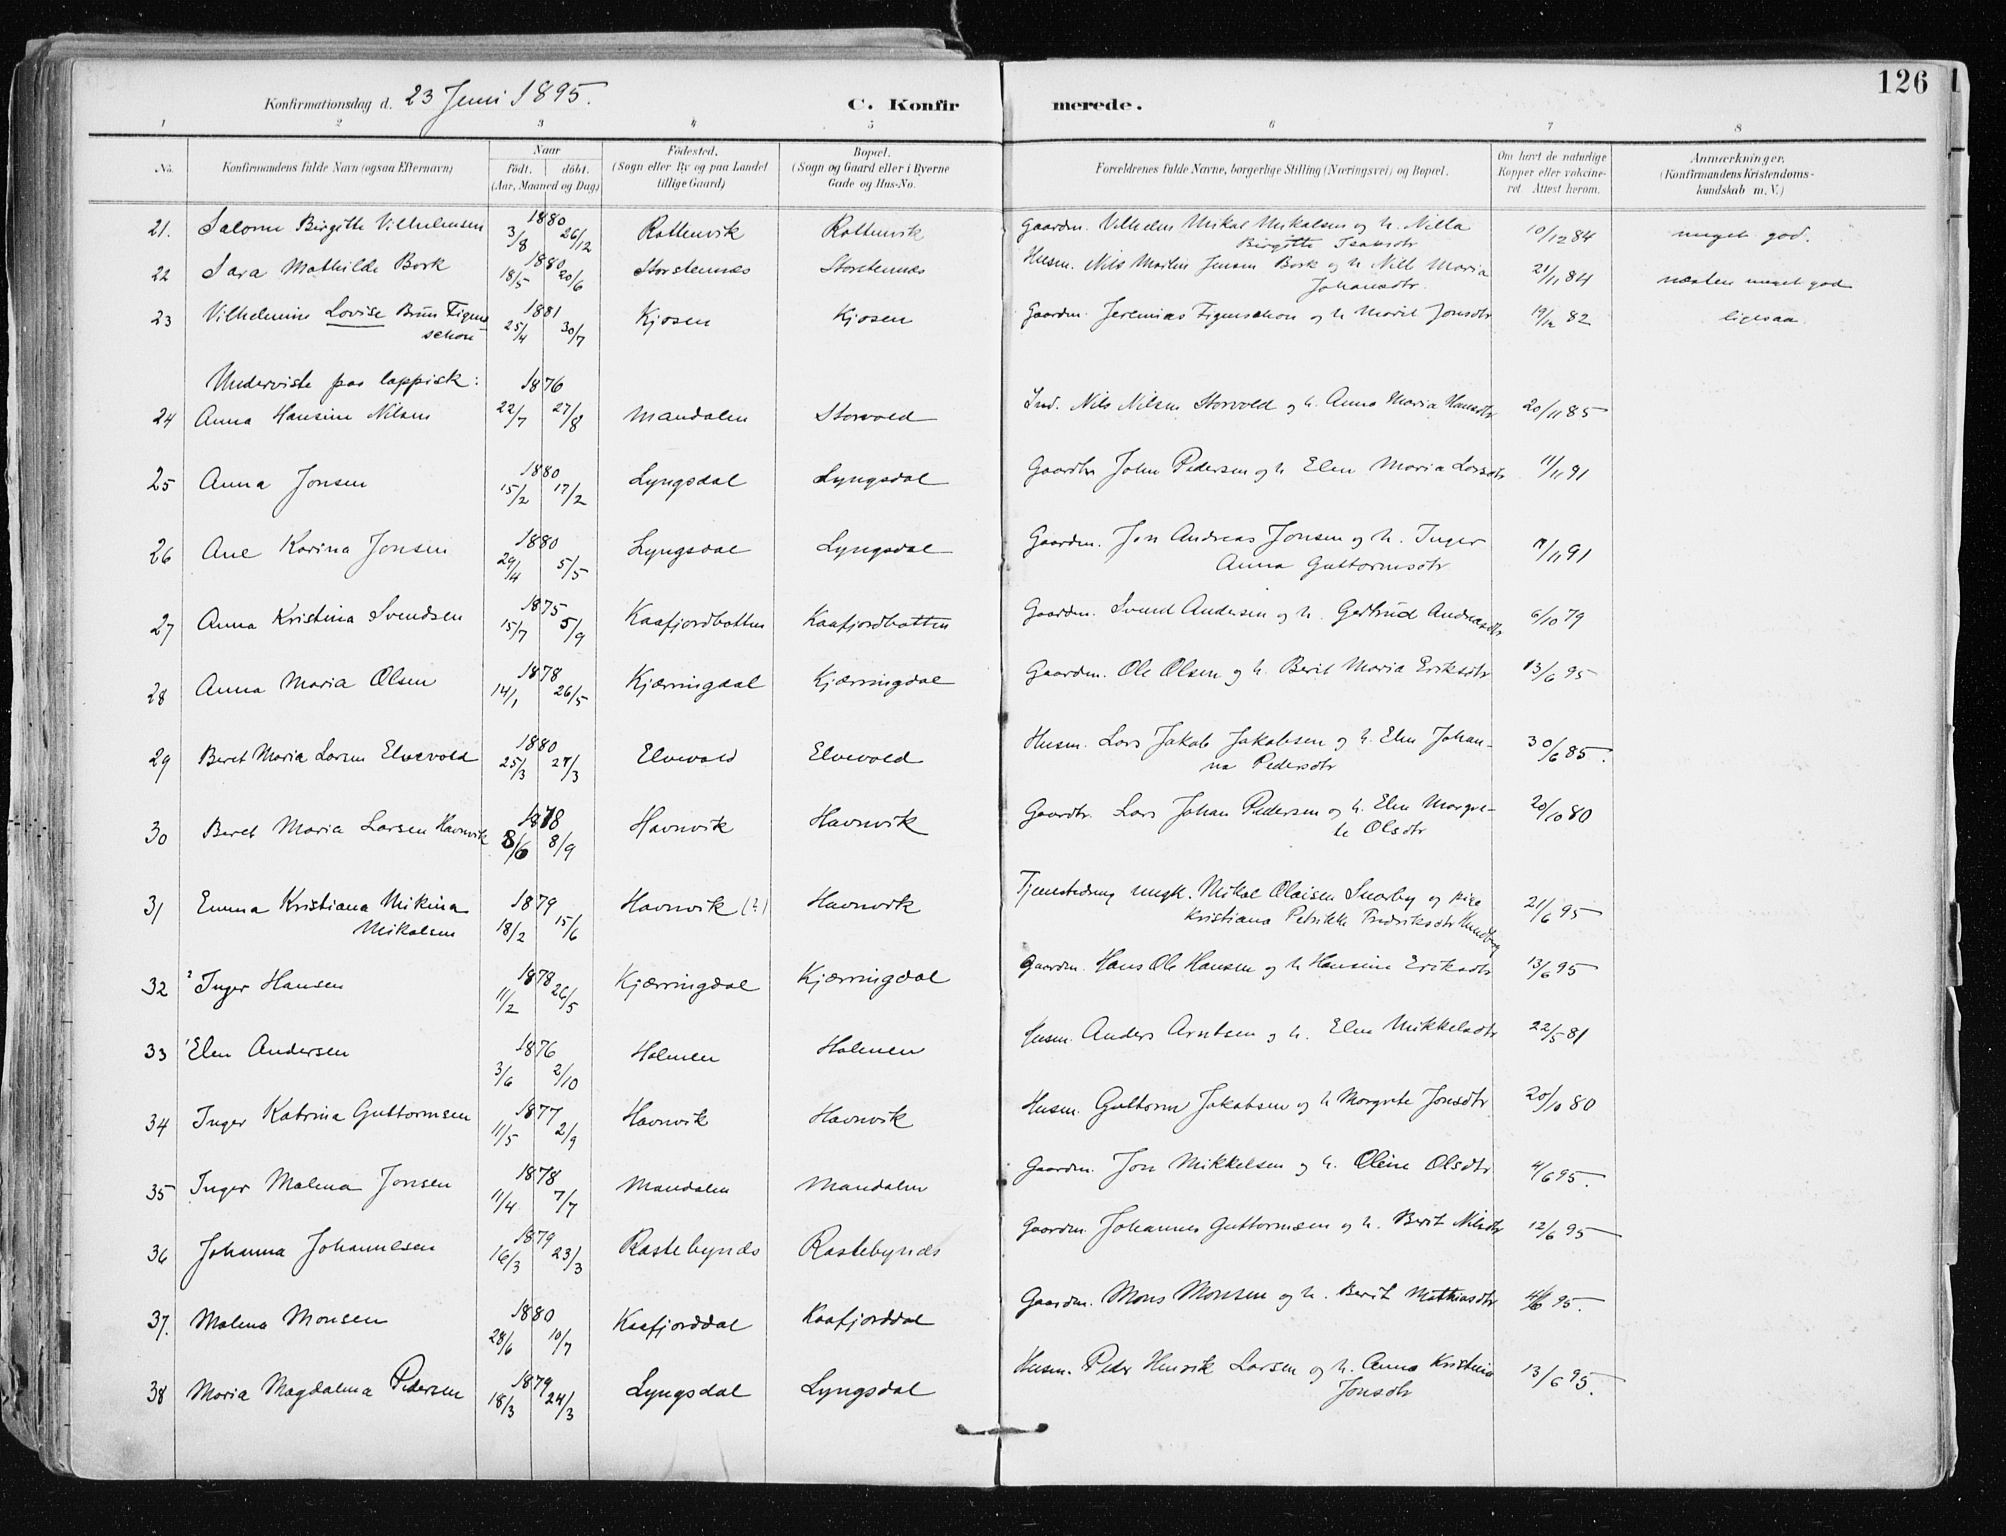 126
Konfirmationsdag d. 23 Juni 1895. C. Konfirmerede.
1 2 3 4 5 6 7 8
No. Konfirmandens fulde Navn (ogsaa Efternavn) Naar født. døbt. (Aar, Maaned og Dag) Fødested. (Sogn eller By og paa Landet tillige Gaard) Bopæl. (Sogn og Gaard eller i Byerne Gade og Hus-No. Forældrenes fulde Navne, borgerlige Stilling (Næringsvei) og Bopæl. Om havt de naturlige Kopper eller vakcineret. Attest herom. Anmærkninger. (Konfirmandens Kristendomskundskab m. V.)
21. Salome Birgitte Vilhelmsen 1880 3/8 26/12 Rottenvik Rottenvik Gaardm. Vilhelm Mikal Mikalsen og h. Nilla Birgitte Isaksdtr 10/12 84 meget god.
22 Sara Mathilde Bork 1880 18/5 20/6 Storstennes Storstennes Husm. Nils Martin Jensen Bork og h. Nill Maria Johansdtr. 21/11 84 næsten meget god
23 Vilhelmine Lovise Brun Figenschou 1881 25/4 30/7 Kjosen Kjosen Gaardm. Jeremias Figenschou og h. Marit Jonsdtr 19/12 82 ligesaa
Underviste paa lappisk:
24 Anna Hansine Nilsen 1876 22/7 27/8 Mandalen Storvold Ind. Nils Nilsen Storvold og h. Anna Maria Hansdtr 20/11 85
25 Anna Jonsen 1880 15/2 17/2 Lyngsdal Lyngsdal Gaardbr John Pedersen og h. Elen Maria Larsdtr 11/11 91
26 Ane Karina Jonsen 1880 29/4 5/5 Lyngsdal Lyngsdal Gaardm. Jon Andreas Jonsen og h. Inger Anna Guttormsdtr 11/11 91
27 Anna Kristina Svendsen 1875 15/7 5/9 Kaafjordbotten Kaafjordbotten Gaardm. Svend Andersen og h. Gertrud Andreasdtr 6/10 79
28 Anna Maria Olsen 1878 14/1 26/5 Kjærringdal Kjærringdal Gaardm. Ole Olsen og h. Berit Maria Eriksdtr 13/6 95
29 Beret Maria Larsen Elvevold 1880 25/3 27/3 Elvevold Elvevold Husm. Lars Jakob Jakobsen og h. Elen Johanna Pedersdtr 30/6 85.
30 Beret Maria Larsen Havnvik 1878 8/6 8/9 Havnvik Havnvik Gaardbr. Lars Johan Pedersen og h. Elen Margrete Olsdtr 20/10 80
31 Emma Kristiana Mikina Mikalsen 1879 18/2 15/6 Havnvik (?) Havnvik Tjenestedreng ungk. Mikal Olaisen Snarby og pige Kristiana Petrikke Fredriksdtr 21/6 95
32 2 Inger Hansen 1878 11/2 26/5 Kjærringdal Kjærringdal Gaardm. Hans Ole Hansen og h Hansine Eriksdtr 13/6 95
33 1 Elen Andersen 1876 3/6 2/10 Holmen Holmen Husm. Anders Arntsen og h. Elen Mikkelsdtr 22/5 81
34 Inger Katrina Guttormsen 1877 11/5 2/9 Havnvik Havnvik Husm. Guttorm Jakobsen og h Margrete Jonsdtr 20/10 80
35 Inger Malena Jonsen 1878 11/4 7/7 Mandalen Mandalen Gaardm. Jon Mikkelsen og h. Oline Olsdtr 4/6 95.
36 Johanna Johannesen 1879 16/3 23/3 Rastebynes Rastebynes Gaardm. Johannes Guttormsen og h. Berit Nilsdtr 12/6 95
37. Malena Monsen 1880 28/6 10/7 Kaafjorddal Kaafjorddal Gaardm. Mons Monsen og h. Berit Mathiasdtr 4/6 95.
38 Maria Magdalena Pedersen 1879 18/3 24/3 Lyngsdal Lyngsdal Husm. Peder Henrik Larsen og h. Anna Kristina Jonsdtr 13/6 95.